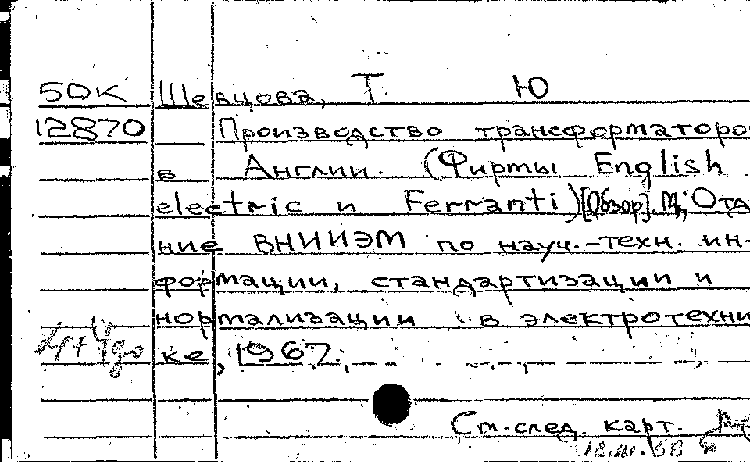 50К Шевцова, Т. Ю
12870 Производство трансформаторо
в Англии. (Фирмы English
electric и Ferranti) [Обзор]. М., Отд
ние ВНИИЭМ по науч.-техн. ин-
формации, стандартизации и
нормализации в электротехни
ке, 1967.
См. след. карт.